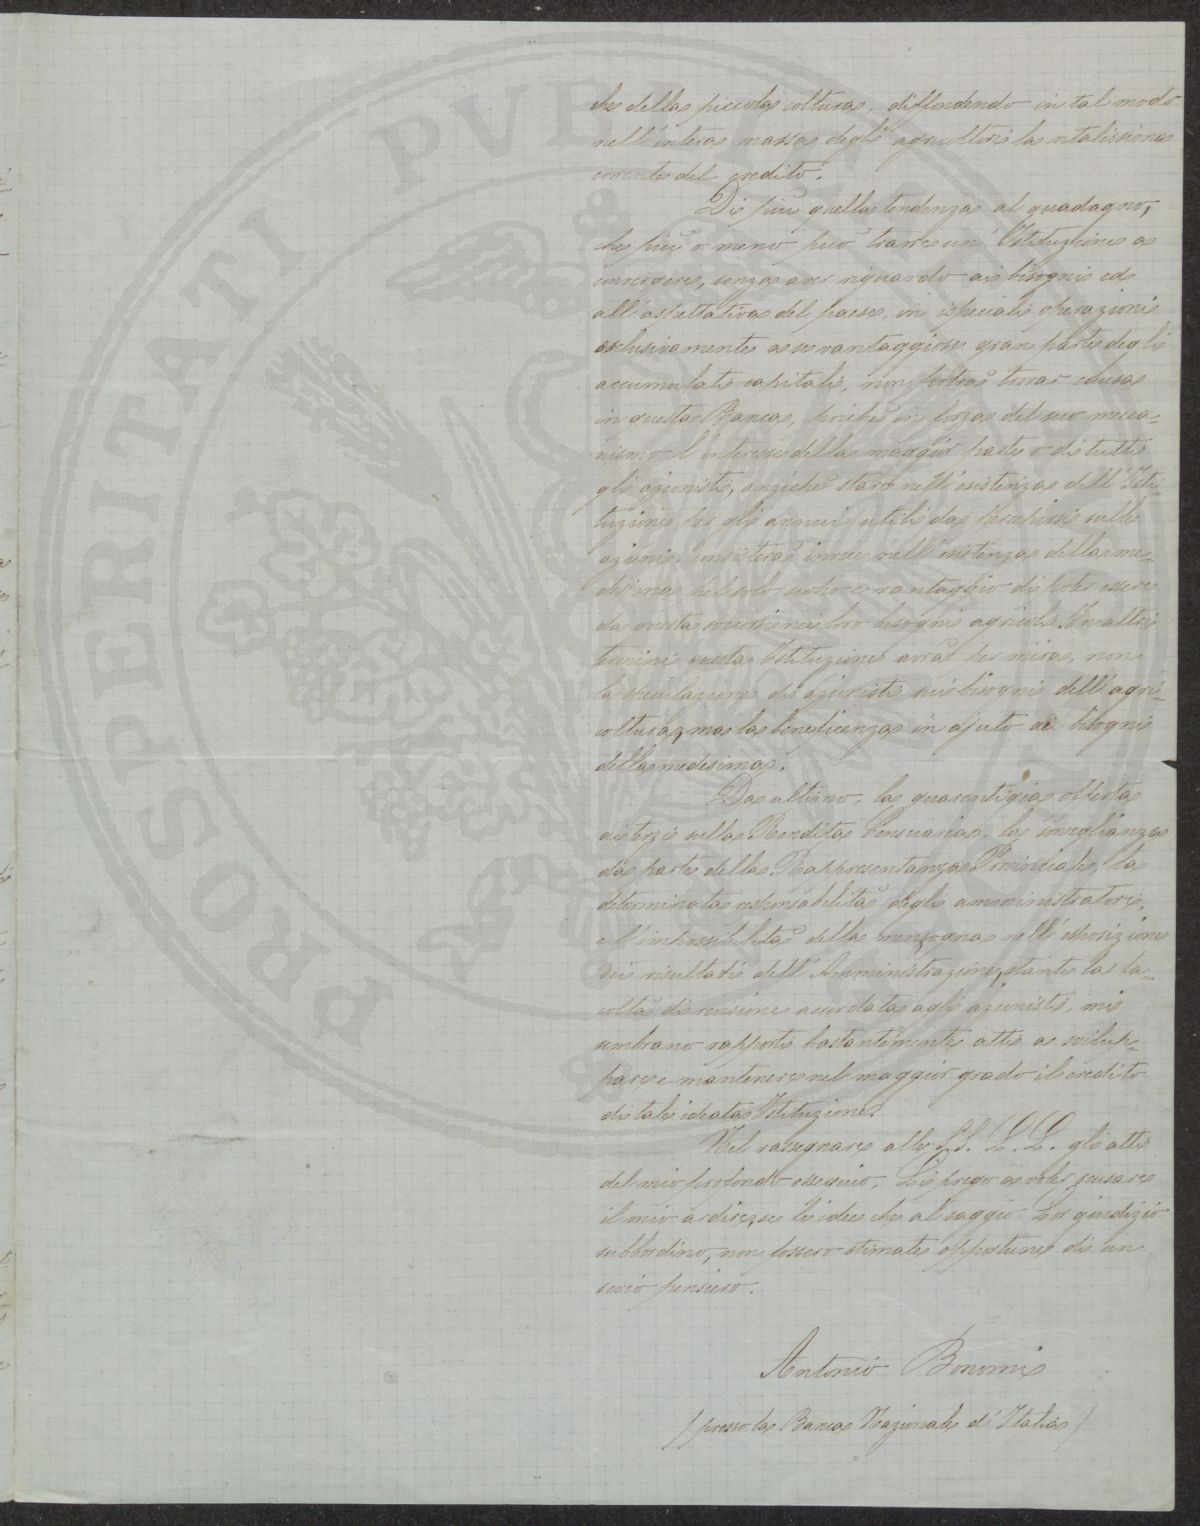 che della piccola coltura, diffondendo in tal modo
nell'intera massa degli agricoltori la vitalissima
corrente del credito.
Di più quella tendenza al guadagno,
che più o meno può trarre un' Istituzione a
convergere, senza aver riguardo ai bisogni ed
all'aspettativa del paese, in ispeciali operazioni
esclusivamente a se vantaggiose gran parte degli
accumulati capitali, non potrà trovar causa
in questa Banca, poichè in forza del suo mecca=
nismo l'interesse della maggior parte o di tutti
gli azionisti, anzichè stare nell'esistenza dell'Isti=
tuzione per gli annui utili da percepirsi sulle
azioni, consisterà invece nell'esistenza della me=
desima pel solo scopo e vantaggio di poter essere
da questa sovvenuti nei loro bisogni agricoli. In altri
termini questa Istituzione avrà per mira, non
la speculazione di azionisti sui bisogni dell'agri=
coltura, ma la beneficenza in ajuto ai bisogni
della medesima.
Da ultimo, la guarentigia offerta
ai terzi sulla Rendita Censuaria, la sorveglianza
da parte della Rappresentanza Provinciale, la
determinata responsabilità degli amministratori,
e l'impossibilità della menzogna nell'esposizione
dei risultati dell'Amministrazione, stante la fa=
coltà di revisione accordata agli azionisti, mi
sembrano rapporti bastantemente atti a svilup=
pare e mantenere nel maggior grado il credito
di tale ideata Istituzione.
Nel rassegnare alle LL. LL. gli atti
del mio profondo ossequio, Li prego a voler scusare
il mio ardire, se le idee che al saggio Lor giudizio
subordino, non fossero stimate opportune di un
serio pensiero.
Antonio Bonomi
/ presso la Banca Nazionale d'Italia /
PROSPERITATI PUBL